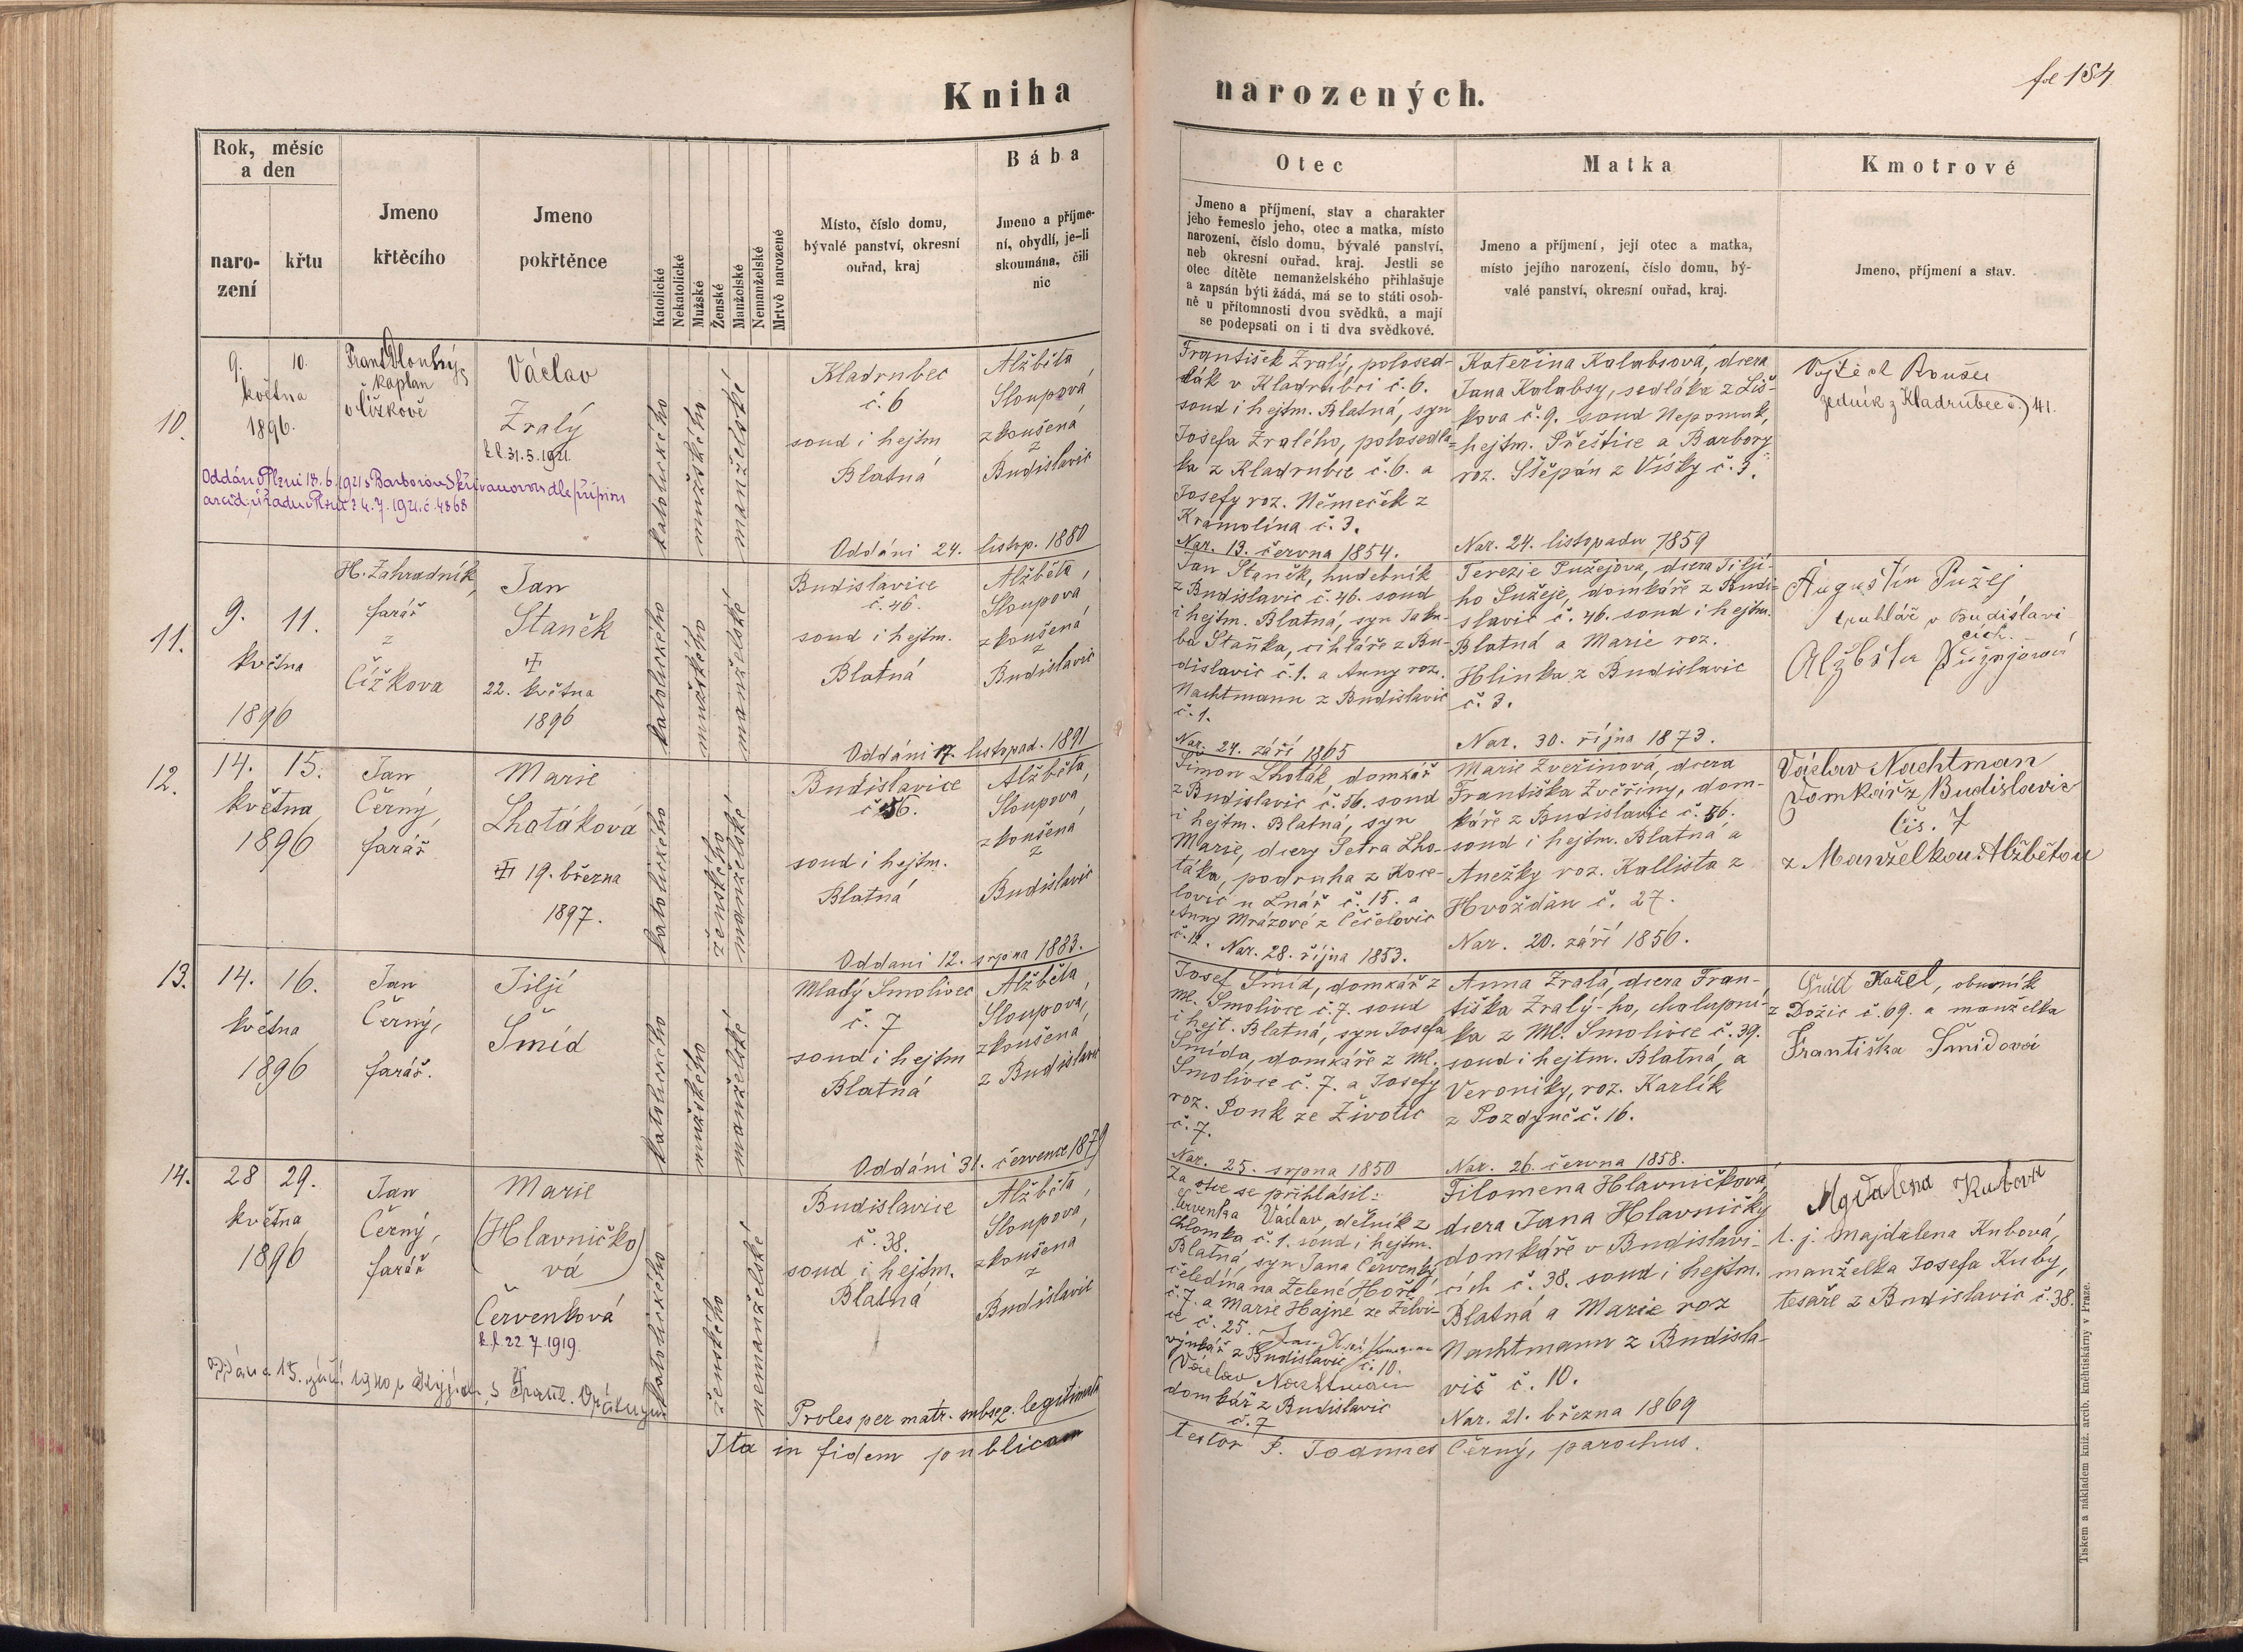 Kniha
narozených.
fol 184
Rok, měsíc
a den
naro-
zení
křtu
Jmeno
křtěcího
Jmeno
pokřtěnce
Katolické
Nekatolické
Mužské
Ženské
Manželské
Nemanželské
Mrtvě narozené
Místo, číslo domu,
bývalé panství, okresní
ouřad, kraj
Bába
Jmeno a příjme-
ní, obydlí, je-li
skoumána, čili
nic
Otec
Jmeno a příjmení, stav a charakter
jeho řemeslo jeho, otec a matka, místo
narození, číslo domu, bývalé panství,
neb okresní ouřad, kraj. Jestli se
otec dítěte nemanželského přihlašuje
a zapsán býti žádá, má se to státi osob-
ně u přítomnosti dvou svědků, a mají
se podepsati on i ti dva svědkové.
Matka
Jmeno a příjmení, její otec a matka,
místo jejího narození, číslo domu, bý-
valé panství, okresní ouřad, kraj.
Kmotrové
Jmeno, příjmení a stav.
10.
9. 10.
května
1896.
Frant Dlouhý,
kaplan
v Čížkově
Václav
Zralý
k.l. 31.5.1921.
Oddán v Plzni 18.6.1921 s Barborou Skřivanovou dle přípisu
arciď. úřadu v Plzni z 4.7.1921 č. 4868
katolického
mužského
manželské
Kladrubec
č. 6
soud i hejtm
Blatná
Alžběta
Sloupová
zkoušená
z
Budislavic
Oddáni 24. listop. 1880
František Zralý, polosed-
lák v Kladrubci č. 6.
soud i hejtm. Blatná, syn
Josefa Zralého, polosedlá-
ka z Kladrubce č. 6. a
Josefy roz. Němeček z
Kramolína č. 3.
Nar. 13. června 1854.
Kateřina Kalabsová, dcera
Jana Kalabsy, sedláka z Liš-
kova č. 9. soud Nepomuk,
hejtm. Přeštice a Barbory
roz. Štěpán z Vísky č. 3.
Nar. 24. listopadu 1859
Vojtěch Roušee
zedník z Kladrubec č. 41.
11.
9. 11.
května
1896
H. Zahradník,
farář
z
Čížkova
Jan
Staněk
22. května
1896
katolického
mužského
manželské
Budislavice
č. 46.
soud i hejtm.
Blatná
Alžběta,
Sloupova
zkoušená
z
Budislavic
Oddáni 17. listopad. 1891
Jan Staněk, hudebník
z Budislavic č. 46. soud
i hejtm. Blatná, syn Jaku-
ba Staňka, cihláře z Bu-
dislavic č. 1. a Anny roz.
Nachtmann z Budislavic
č. 1.
Nar. 24. září 1865
Terezie Pužejova, dcera Filji-
ho Pužeje, domkáře z Budi-
slavic č. 46. soud i hejtm.
Blatná a Marie roz.
Hlinka z Budislavic
č. 3.
Nar. 30. října 1873.
Augustin Pužej
truhlář v Budislavi
cích.
Alžběta Pužejová
12.
14. 15.
května
1896
Jan
Černý,
farář
Marie
Lhotáková
19. března
1897.
katolického
ženského
manželské
Budislavice
č. 56.
soud i hejtm.
Blatná
Alžběta,
Sloupova
zkoušená
z
Budislavic
Oddani 12. srpna 1883.
Šimon Lhoták, domkář
z Budislavic č. 56. soud
i hejtm. Blatná, syn
Marie, dcery Petra Lho-
táka, podruha z Koce-
lovic u Lnář č. 15. a
Anny Mrázové z Čečelovic
č. 12. Nar. 28. října 1853.
Marie Zveřinová, dcera
Františka Zvěřiny, dom-
káře z Budislavic č. 56.
soud i hejtm. Blatná a
Anežky roz. Kallista z
Hvožďan č. 27.
Nar. 20. září 1856.
Václav Nachtman
Domkář z Budislavic
čís. 7
z Manželkou Alžbětou
13.
14. 16.
května
1896
Jan
Černý,
farář.
Jiljí
Šmíd
katolického
mužského
manželské
Mladý Smolivec
č. 7
soud i hejtm
Blatná
Alžběta
Sloupova,
zkoušená
z Budislavic
Oddáni 31. července 1879
Josef Šmíd, domkář z
Ml. Smolivce č. 7. soud
i hejt. Blatná, syn Josefa
Šmída, domkáře z Ml.
Smolivce č. 7. a Josefy
roz. Ponk ze Životic
č. 7.
Nar. 25. srpna 1850
Anna Zralá, dcera Fran-
tiška Zralý-ho, chalupní-
ka z Ml. Smolivce č. 39.
soud i hejtm. Blatná, a
Veroniky, roz. Karlík
z Pozdyně č. 16.
Nar. 26. června 1858.
Karel, obuvník
z Dožic č. 69. a manželka
Františka Šmidová
14.
28 29.
května
1896
Jan
Černý,
farář
Marie
(Hlavničko
vá)
Červenková
k.l. 22 7 1919
15. září 1940 s Frant.
katolického
ženského
nemanželské
Budislavice
č. 38.
soud i hejtm.
Blatná
Alžběta,
Sloupova,
zkoušena
z
Budislavic
Proles per matr. subseq. legitimata
Za otce se přihlásil:
Červenka Václav, dělník z
Chlomka č. 1. soud i hejtm.
Blatná, syn Jana Červenky,
čeledína na Zelené Hoře,
č. 7. a Marie Hajné ze Želvi-
ce č. 25.
z Budislavic č. 10.
Václav Nachtman
domkář z Budislavic
č. 7
Filomena Hlavničková,
dcera Jana Hlavničky
domkáře v Budislavi-
cích č. 38. soud i hejtm.
Blatná a Marie roz
Nachtmann z Budisla-
vic č. 10.
Nar. 21. března 1869
Magdalena Kubova
t. j. Majdalena Kubová,
manželka Josefa Kuby,
tesaře z Budislavic č. 38.
Ita in fidem publicam
testor P. Joannes Černý, parochus.
Tiskem a nákladem kníž. arcib. knihtiskárny v Praze.